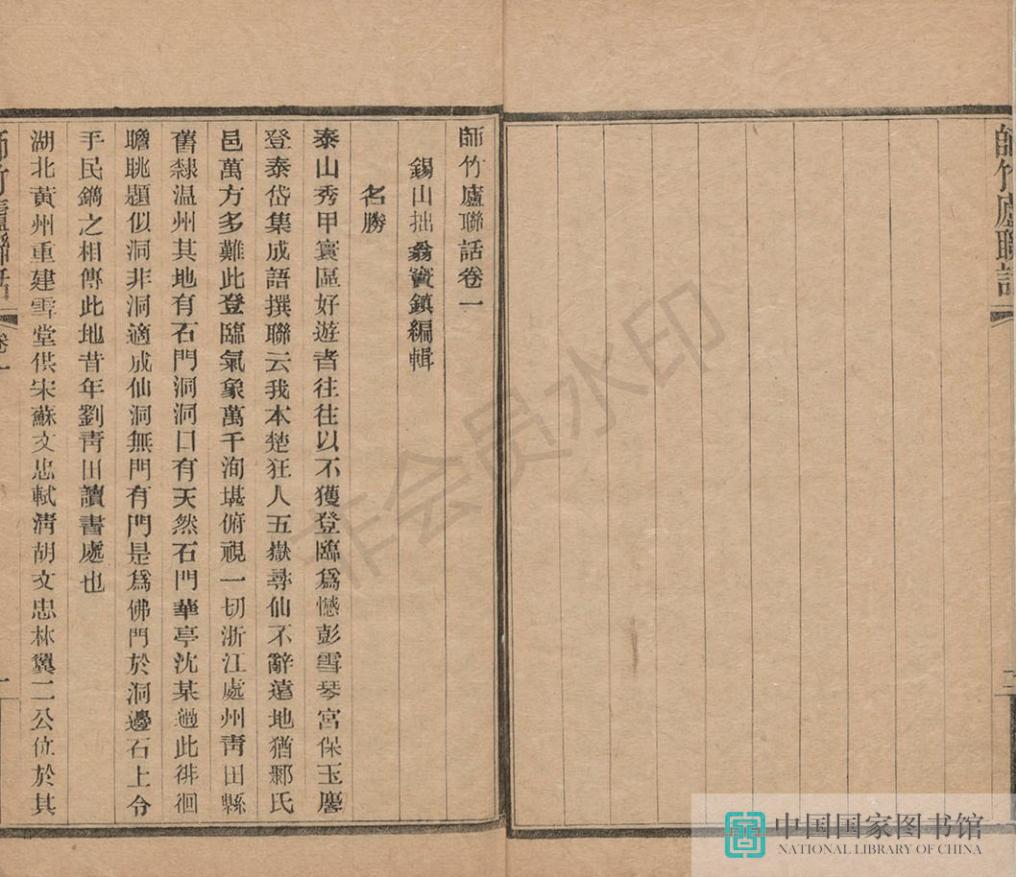 師竹廬聯話
二
師竹廬聯話卷一
錫山拙翁竇鎮編輯
名勝
泰山秀甲寰區好遊者往往以不獲登臨爲憾彭雪琴宮保玉麐
登泰岱集成語撰聯云我本楚狂人五嶽尋仙不辭遠地猶鄹氏
邑萬方多難此登臨氣象萬千洵堪俯視一切浙江處州靑田縣
舊隸温州其地有石門洞洞口有天然石門華亭沈某過此徘徊
瞻眺題似洞非洞適成仙洞無門有門是爲佛門於洞邊石上令
手民鐫之相傳此地昔年劉靑田讀書處也
湖北黃州重建雪堂供宋蘇文忠軾淸胡文忠林翼二公位於其
師竹廬聯話 卷一
一
非会员水印
中国国家图书馆
NATIONAL LIBRARY OF CHINA